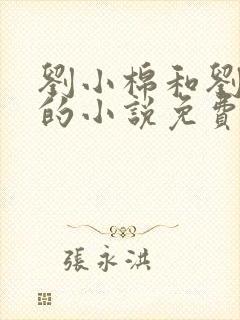 劉小棉和劉
的小說免費
張永洪